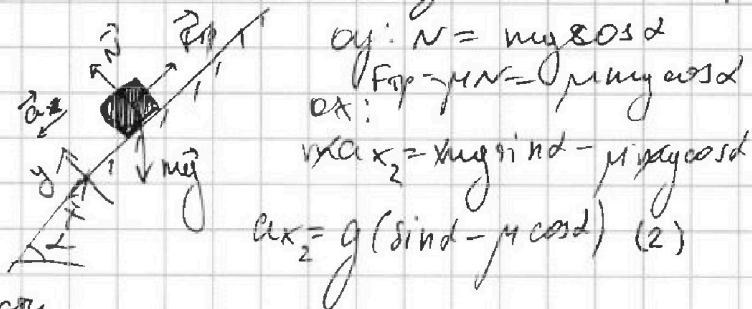 N⃗ F⃗тр
a⃗₂
y
x
mg⃗
α
oy: N = mgcosα
Fтр = μN = μmgcosα
ox:
max₂ = mgsinα - μmgcosα
ax₂ = g(sinα - μcosα) (2)